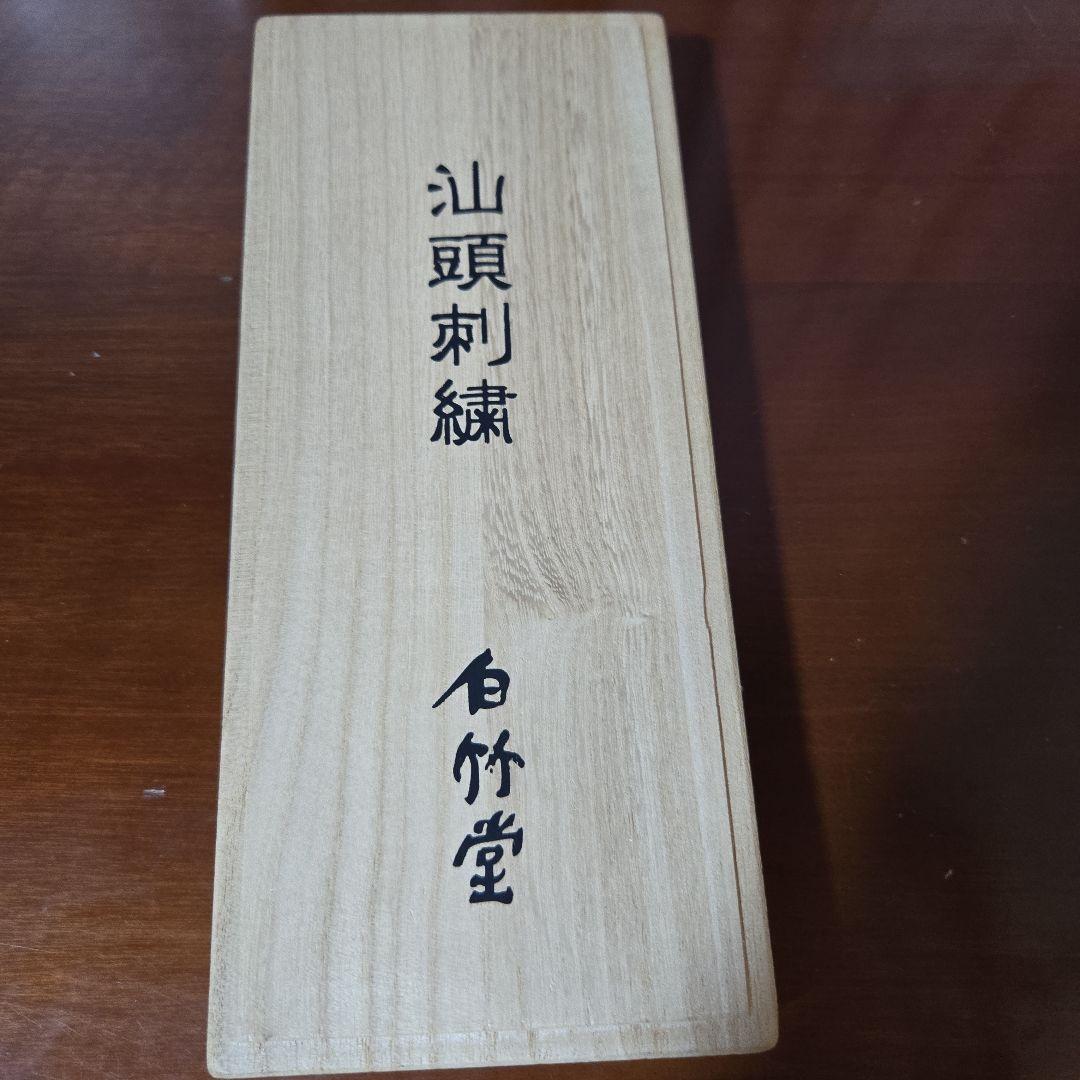 汕頭刺繍
白竹堂